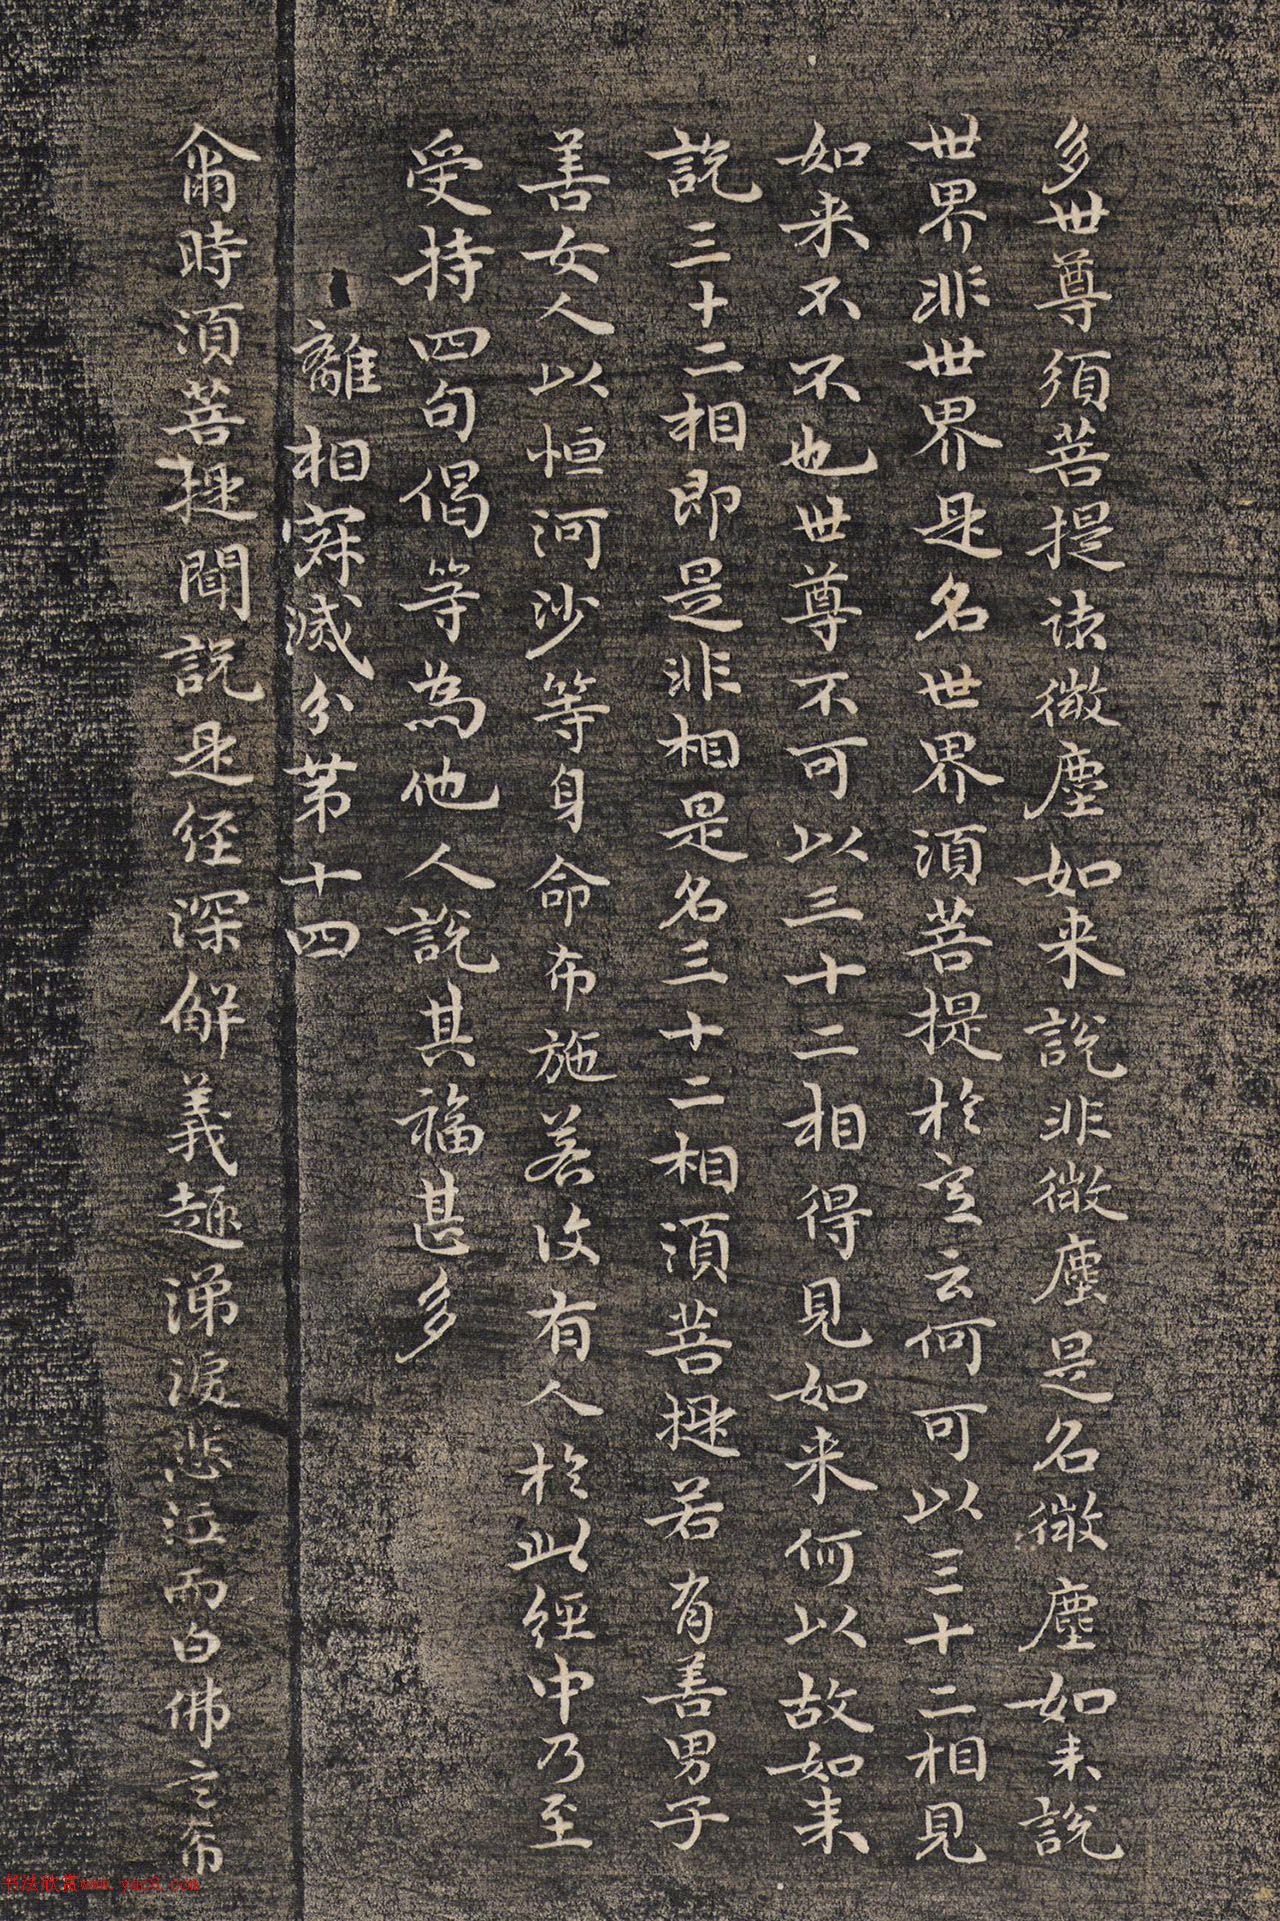 多世尊須菩提諸微塵如来說非微塵是名微塵如来說
世界非世界是名世界須菩提於意云何可以三十二相見
如来不不也世尊不可以三十二相得見如来何以故如来
說三十二相即是非相是名三十二相須菩提若有善男子
善女人以恒河沙等身命布施若復有人於此經中乃至
受持四句偈等為他人說其福甚多
離相寂滅分第十四
爾時須菩提聞說是經深解義趣涕淚悲泣而白佛言希
书法欣赏www.yac8.com